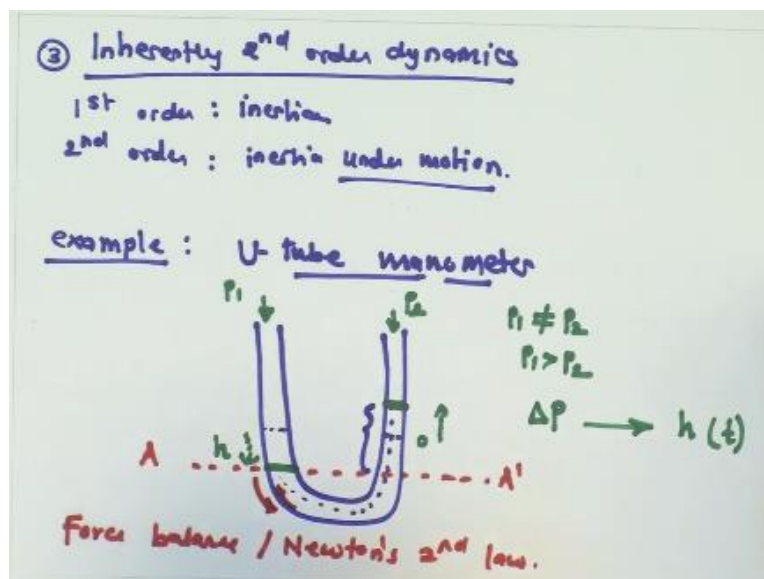 ③ Inherently 2nd order dynamics
1st order : inertia
2nd order : inertia under motion.
example : U-tube manometer
P1 P2
P1 ≠ P2
P1 > P2
ΔP → h(t)
h 0
A A'
Force balance / Newton's 2nd law.